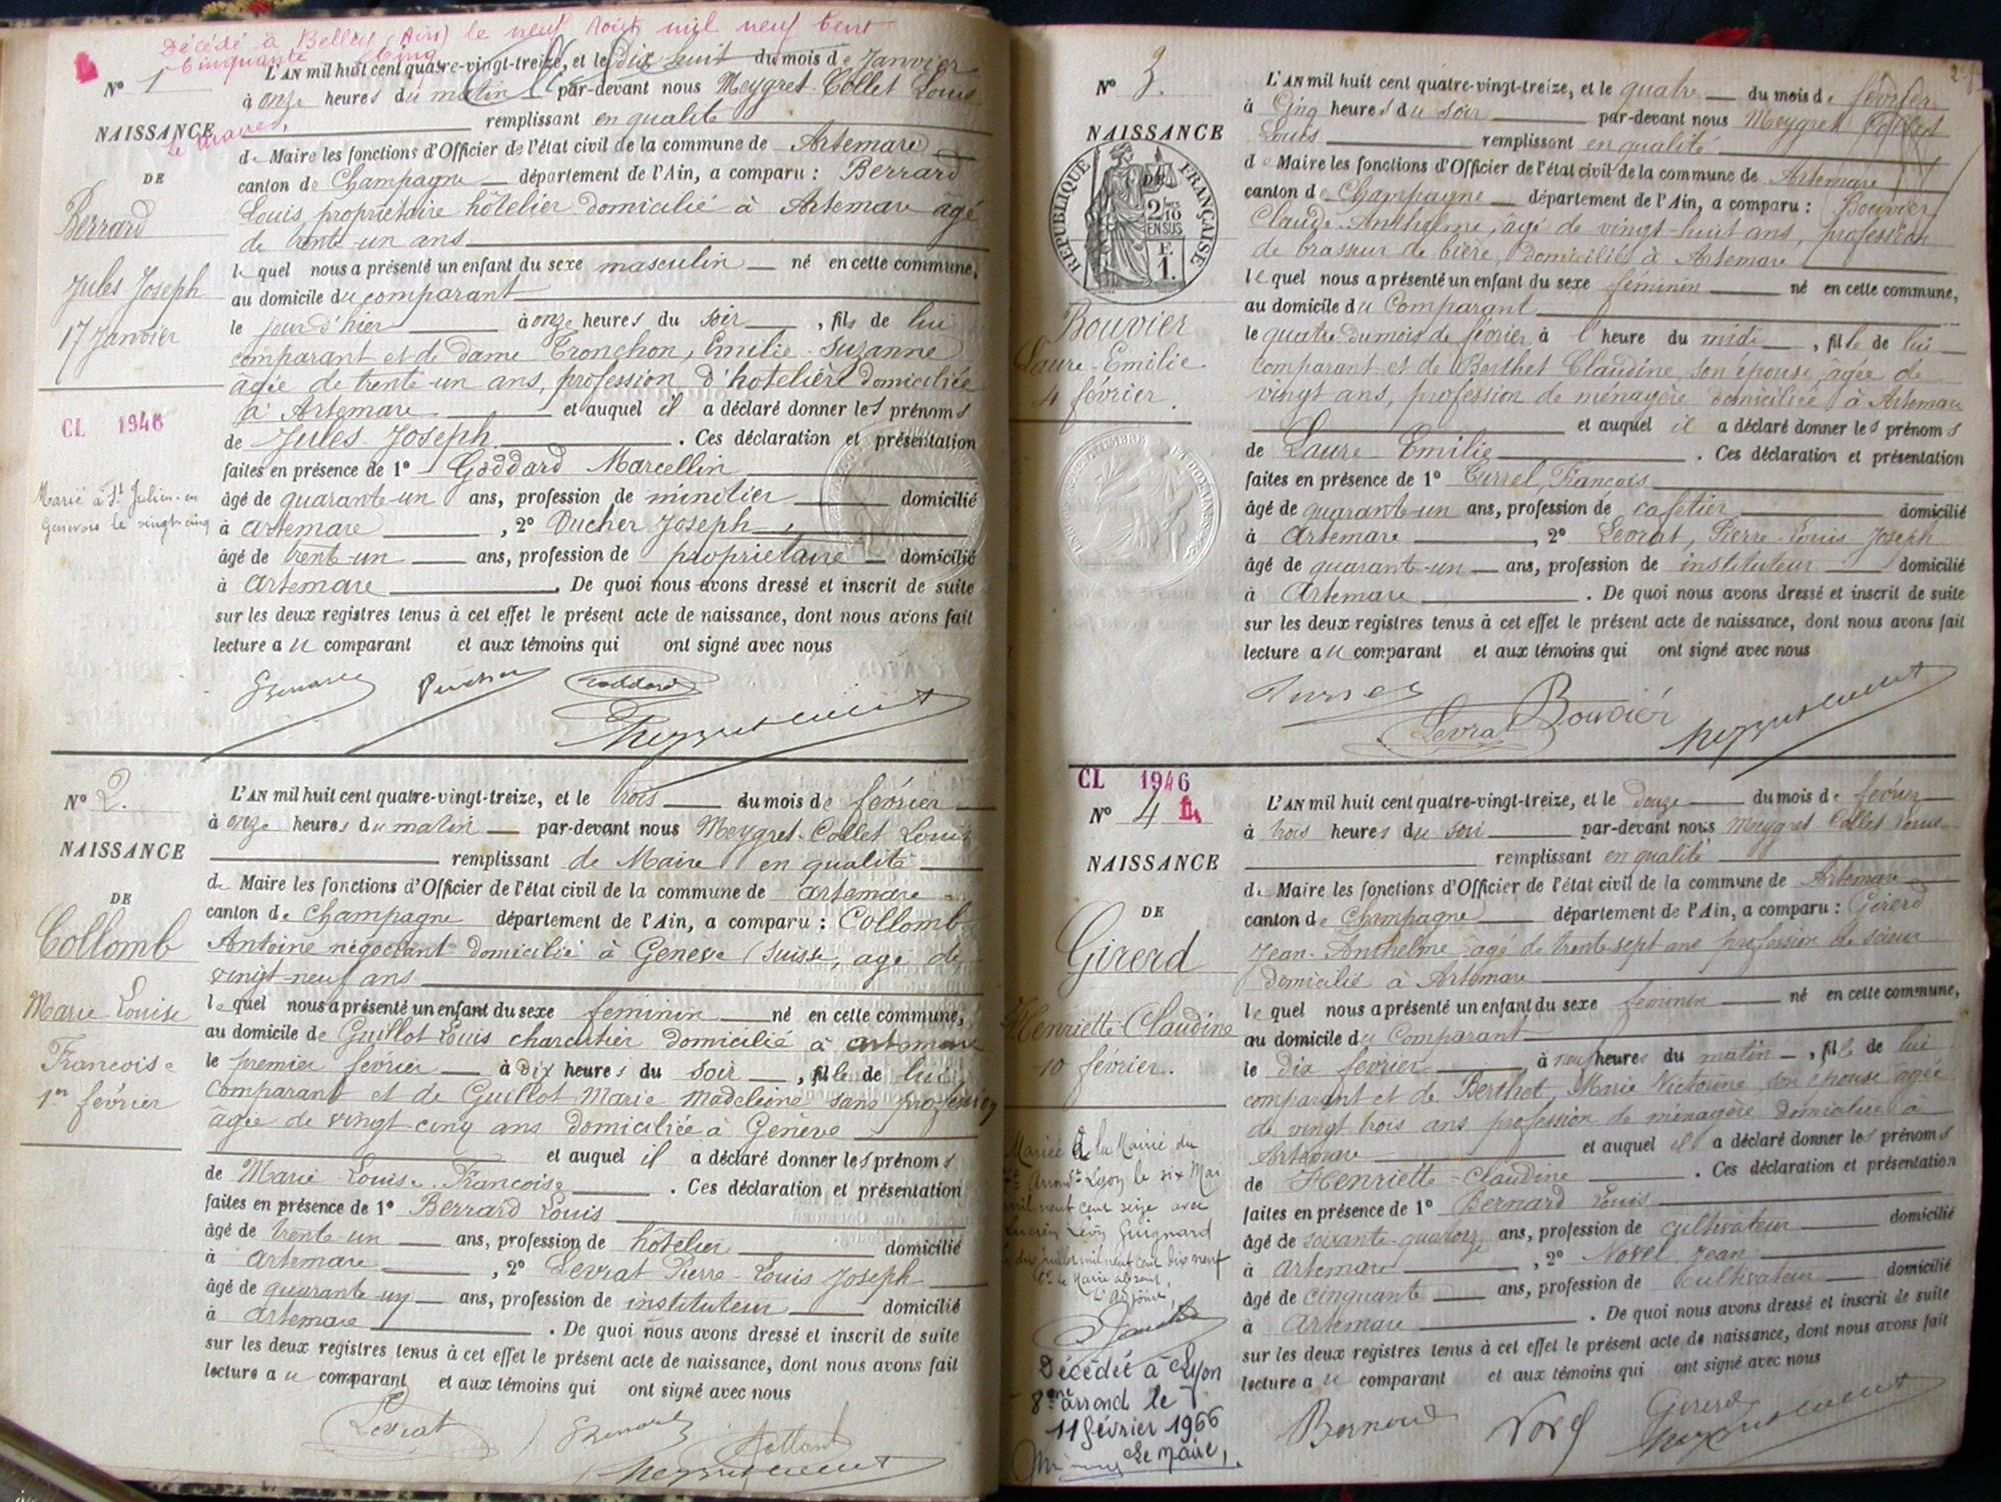 Décédé à Belley (Ain) le neuf Août mil neuf cent
cinquante cinq
Le Maire,
N° 1
NAISSANCE
DE
Berrard
Jules Joseph
17 Janvier
CL 1946
Marié à St Julien-en
Genevois le vingt-cinq
L'AN mil huit cent quatre-vingt-treize, et le dix huit du mois de Janvier
à onze heures du matin par-devant nous Meygret-Collet Louis
remplissant en qualité
de Maire les fonctions d'Officier de l'état civil de la commune de Artemare
canton de Champagne département de l'Ain, a comparu : Berrard
Louis, propriétaire hôtelier domicilié à Artemare âgé
de trente-un ans
lequel nous a présenté un enfant du sexe masculin né en cette commune,
au domicile du comparant
le jour d'hier à onze heures du soir, fils de lui
comparant et de dame Tronchon, Emilie-Suzanne
âgée de trente-un ans, profession d'hotelière domiciliée
à Artemare et auquel il a déclaré donner les prénoms
de Jules-Joseph. Ces déclaration et présentation
faites en présence de 1° Goddard Marcellin
âgé de quarante-un ans, profession de minotier domicilié
à artemare, 2° Ducher Joseph,
âgé de trente-un ans, profession de propriétaire domicilié
à artemare. De quoi nous avons dressé et inscrit de suite
sur les deux registres tenus à cet effet le présent acte de naissance, dont nous avons fait
lecture au comparant et aux témoins qui ont signé avec nous
Ducher Goddard
N° 2.
NAISSANCE
DE
Collomb
Marie-Louise
Francoise
1er février
L'AN mil huit cent quatre-vingt-treize, et le trois du mois de février
à onze heures du matin par-devant nous Meygret-Collet Louis
remplissant de Maire en qualité
de Maire les fonctions d'Officier de l'état civil de la commune de artemare
canton de Champagne département de l'Ain, a comparu : Collomb
Antoine négociant domicilié à Genève (Suisse, age de
vingt-neuf ans
lequel nous a présenté un enfant du sexe feminin né en cette commune,
au domicile de Guillot Louis charcutier domicilié à artemare
le premier février à dix heures du soir, fille de lui
comparant et de Guillot Marie Madeleine sans profession
âgée de vingt cinq ans domiciliée à Genève
et auquel il a déclaré donner les prénoms
de Marie Louise Francoise. Ces déclaration et présentation
faites en présence de 1° Berrard Louis
âgé de trente-un ans, profession de hôtelier domicilié
à artemare, 2° Levrat Pierre-Louis Joseph
âgé de quarante-un ans, profession de instituteur domicilié
à artemare. De quoi nous avons dressé et inscrit de suite
sur les deux registres tenus à cet effet le présent acte de naissance, dont nous avons fait
lecture au comparant et aux témoins qui ont signé avec nous
Levrat Collomb
N° 3.
NAISSANCE
DE
RÉPUBLIQUE FRANÇAISE
2/10 EN SUS
F. 1.
Bouvier
Laure-Emilie
4 février.
L'AN mil huit cent quatre-vingt-treize, et le quatre du mois de février
à cinq heures du soir par-devant nous Meygret Collet
Louis remplissant en qualité
de Maire les fonctions d'Officier de l'état civil de la commune de Artemare
canton de Champagne département de l'Ain, a comparu : Bouvier
Claude-Anthelme, âgé de vingt-huit ans, profession
de brasseur de bière, domicilié à Artemare
lequel nous a présenté un enfant du sexe féminin né en cette commune,
au domicile du Comparant
le quatre du mois de février à l'heure du midi, fille de lui
comparant et de Berthet Claudine son épouse, âgée de
vingt ans, profession de ménagère domiciliée à Artemare
et auquel il a déclaré donner les prénoms
de Laure-Emilie. Ces déclaration et présentation
faites en présence de 1° Turrel, François
âgé de quarante-un ans, profession de cafetier domicilié
à Artemare, 2° Levrat, Pierre-Louis Joseph
âgé de quarante-un ans, profession de instituteur domicilié
à Artemare. De quoi nous avons dressé et inscrit de suite
sur les deux registres tenus à cet effet le présent acte de naissance, dont nous avons fait
lecture au comparant et aux témoins qui ont signé avec nous
Turrel Levrat Bouvier
CL 1946
N° 4
NAISSANCE
DE
Girerd
Henriette-Claudine
10 février.
Mariée à la Mairie du
Arrondt Lyon le six Mai
mil neuf cent seize avec
Lucien Léon Guignard
mil neuf cent dix neuf
Pr le Maire absent,
L'Adjoint,
Décédée à Lyon
8ème arrond le
11 février 1966
Le Maire,
L'AN mil huit cent quatre-vingt-treize, et le douze du mois de février
à trois heures du soir par-devant nous Meygret Collet Louis
remplissant en qualité
de Maire les fonctions d'Officier de l'état civil de la commune de Artemare
canton de Champagne département de l'Ain, a comparu : Girerd
Jean-Anthelme, agé de trente sept ans profession de scieur
domicilié à Artemare
lequel nous a présenté un enfant du sexe féminin né en cette commune,
au domicile du Comparant
le dix février à neuf heures du matin, fille de lui
comparant et de Berthet, Marie Victorine son épouse agée
de vingt trois ans profession de ménagère domiciliée à
Artemare et auquel il a déclaré donner les prénoms
de Henriette-Claudine. Ces déclaration et présentation
faites en présence de 1° Bernard Louis
âgé de soixante-quatorze ans, profession de cultivateur domicilié
à artemare, 2° Novel Jean
âgé de cinquante ans, profession de cultivateur domicilié
à artemare. De quoi nous avons dressé et inscrit de suite
sur les deux registres tenus à cet effet le présent acte de naissance, dont nous avons fait
lecture au comparant et aux témoins qui ont signé avec nous
Bernard Novel Girerd